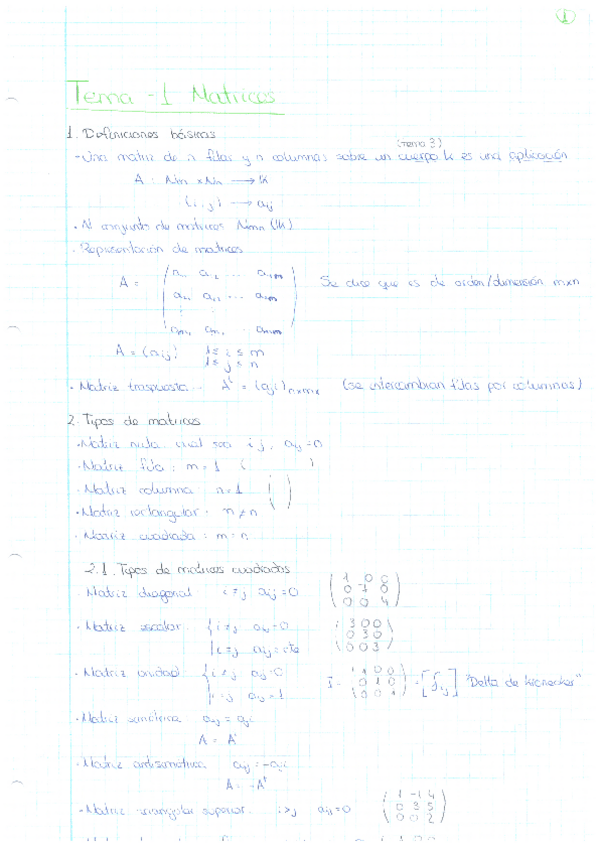 1
Tema -1 Matrices
1. Definiciones básicas
(tema 3)
- Una matriz de n filas y n columnas sobre un cuerpo K es una aplicación
A : Nm x Nn → K
(i, j) → aij
· Al conjunto de matrices Mmxn (K)
· Representación de matrices
A = Se dice que es de orden/dimensión mxn
A = (aij) 1 ≤ i ≤ m
1 ≤ j ≤ n
· Matriz traspuesta... Aᵗ = (aji)nxm (se intercambian filas por columnas)
2. Tipos de matrices
· Matriz nula: cual sea i j, aij = 0
· Matriz fila : m = 1 ( )
· Matriz columna : n = 1 ( )
· Matriz rectangular · m ≠ n
· Matriz cuadrada : m = n
2.1. Tipos de matrices cuadradas
· Matriz diagonal i ≠ j aij = 0
1 0 0
0 0
0 0 4
· Matriz escalar i ≠ j aij = 0
i = j aij = cte
3 0 0
0 3 0
0 0 3
· Matriz unidad i ≠ j aij = 0
i = j aij = 1
I =
1 0 0
0 1 0
0 0 1
= [δij] "Delta de kronecker"
· Matriz simétrica aij = aji
A = Aᵗ
· Matriz antisimétrica aij = -aji
A = -Aᵗ
· Matriz triangular superior. i > j aij = 0
1 -1 4
0 3 5
0 0 2